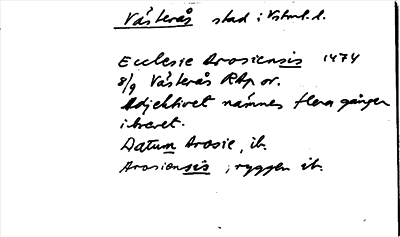 Västerås stad i Vstml. l.
Ecclesie Arosiensis 1474
8/9 Västerås RAp or.
Adjektivet nämnes flera gånger
i brevet.
Datum Arosie, ib.
Arosiensis, i ryggen ib.